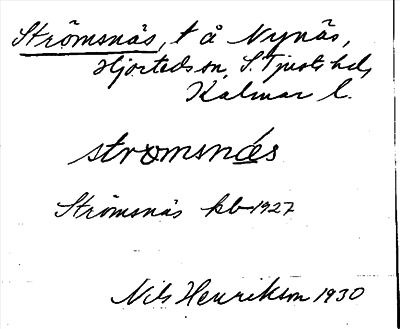 Strömsnäs, t å Nynäs,
Hjorteds sn, S. Tjusts hd,
Kalmar l.
strωmsnæ̀s
Strömsnäs kb 1927
Nils Henrikson 1930